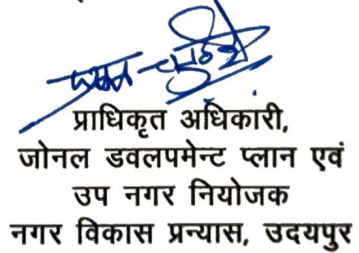 प्राधिकृत अधिकारी,
जोनल डवलपमेन्ट प्लान एवं
उप नगर नियोजक
नगर विकास प्रन्यास, उदयपुर